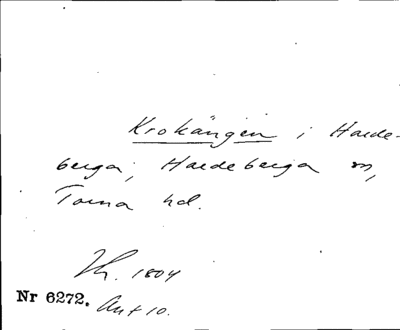 Krokängen i Harde-
berga, Hardeberga sn,
Torna hd.
Lh. 1804
Nr 6272. Akt 10.